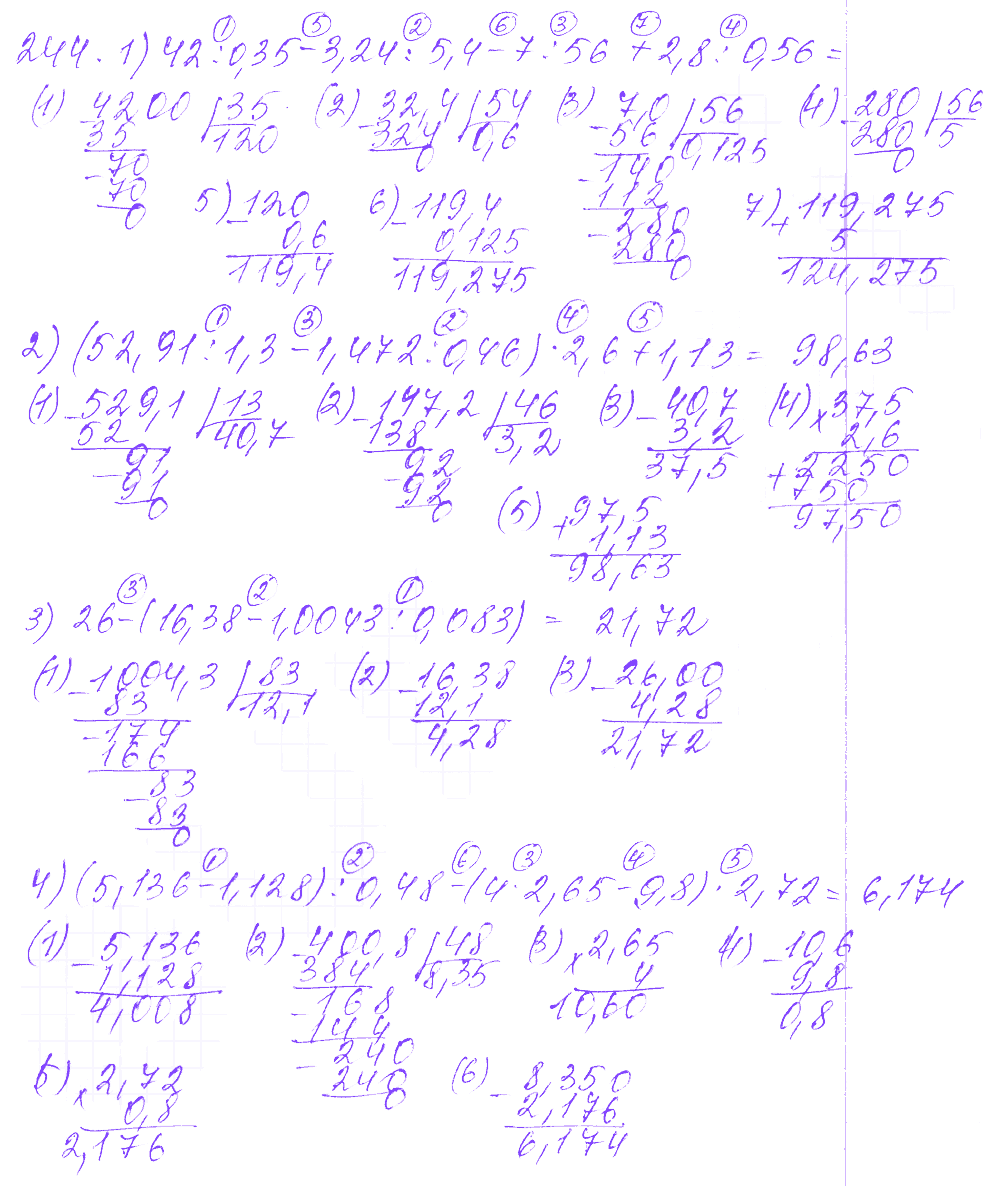 ① ⑤ ② ⑥ ③ ⑦ ④
244. 1) 42 : 0,35 - 3,24 : 5,4 - 7 : 56 + 2,8 : 0,56 =
(1) 4200 | 35 (2) 32,4 | 54 (3) 7,0 | 56 (4) 280 | 56
- 35 120 - 324 0,6 - 56 0,125 - 280 5
- 70 0 - 140 0
70 112
0 - 280
280
0
5) - 120 6) - 119,4 7) + 119,275
0,6 0,125 5
119,4 119,275 124,275
① ③ ② ④ ⑤
2) (52,91 : 1,3 - 1,472 : 0,46) · 2,6 + 1,13 = 98,63
(1) - 529,1 | 13 (2) - 147,2 | 46 (3) - 40,7 (4) x 37,5
52 40,7 138 3,2 3,2 2,6
- 91 - 92 37,5 + 2250
91 92 750
0 0 97,50
(5) + 97,5
1,13
98,63
③ ② ①
3) 26 - (16,38 - 1,0043 : 0,083) = 21,72
(1) - 1004,3 | 83 (2) - 16,38 (3) - 26,00
83 12,1 12,1 4,28
- 174 4,28 21,72
166
- 83
83
0
① ② ⑥ ③ ④ ⑤
4) (5,136 - 1,128) : 0,48 - (4 · 2,65 - 9,8) · 2,72 = 6,174
(1) - 5,136 (2) - 400,8 | 48 (3) x 2,65 4) - 10,6
1,128 384 8,35 4 9,8
4,008 - 168 10,60 0,8
144
- 240
240
0
5) x 2,72 (6) - 8,350
0,8 2,176
2,176 6,174